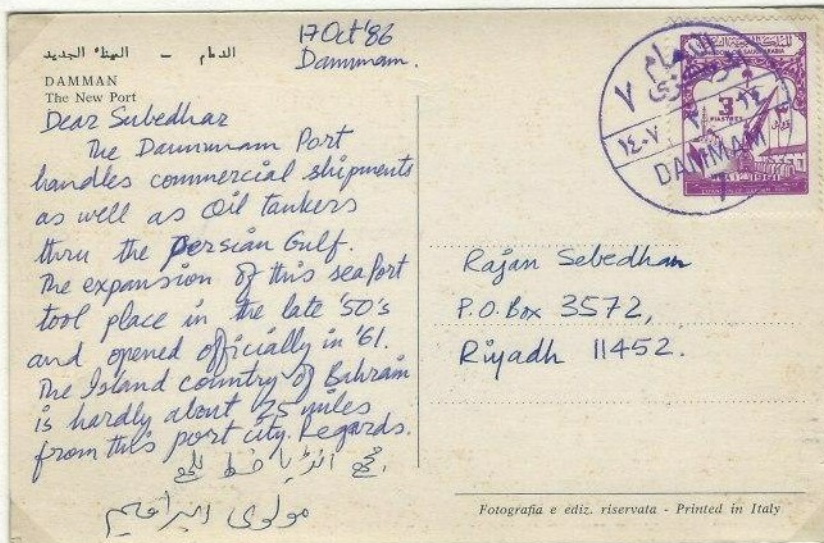 الدمام – الميناء الجديد
DAMMAN
The New Port
17 Oct '86
Dammam.
Dear Subedhar
The Dammam Port
handles commercial shipments
as well as Oil tankers
thru the Persian Gulf.
The expansion of this seaport
tool place in the late '50's
and opened officially in '61.
The Island country of Bahrain
is hardly about 25 miles
from this port city. Regards.
مولوی ابراهیم
الدمام
٧
١٤٠٧
DAMMAM
3
PIASTRES
Rajan Sebedhar
P.O. Box 3572,
Riyadh 11452.
Fotografia e ediz. riservata - Printed in Italy